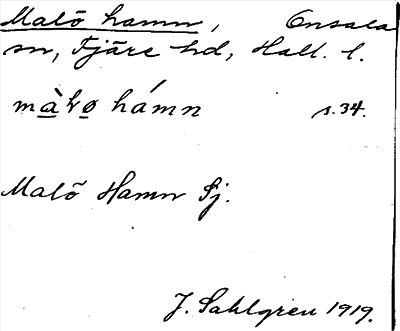 Malö hamn, Onsala
sn, Fjäre hd, Hall. l.
màlø hámn s.34.
Malö Hamn Fj.
J. Sahlgren 1919.